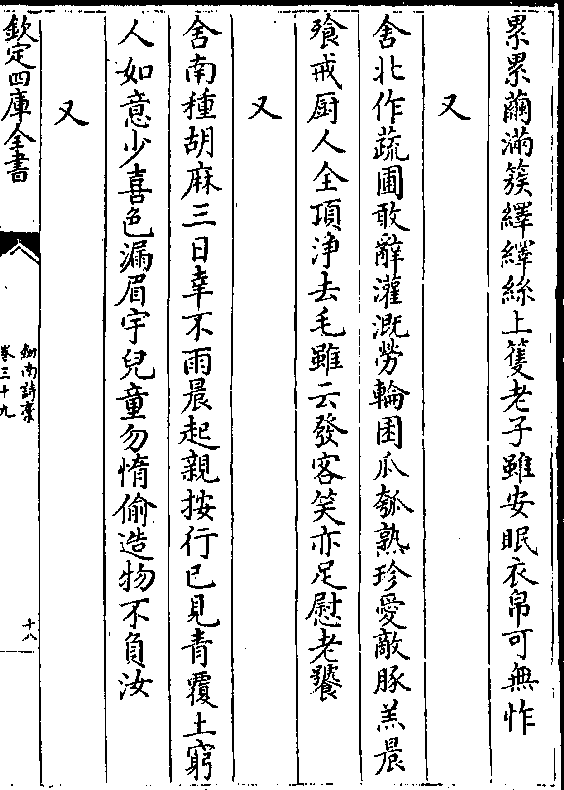 累累繭滿簇繹繹絲上籆老子雖安眠衣帛可無怍
又
舍北作蔬圃敢辭灌溉勞輪囷瓜瓠熟珍愛敵豚羔晨
飱戒厨人全項淨去毛雖云發客笑亦足慰老饕
又
舍南種胡麻三日幸不雨晨起親按行已見青覆土窮
人如意少喜色漏眉宇兒童勿惰偷造物不負汝
又
欽定四庫全書
劍南詩稾
卷三十九
十八